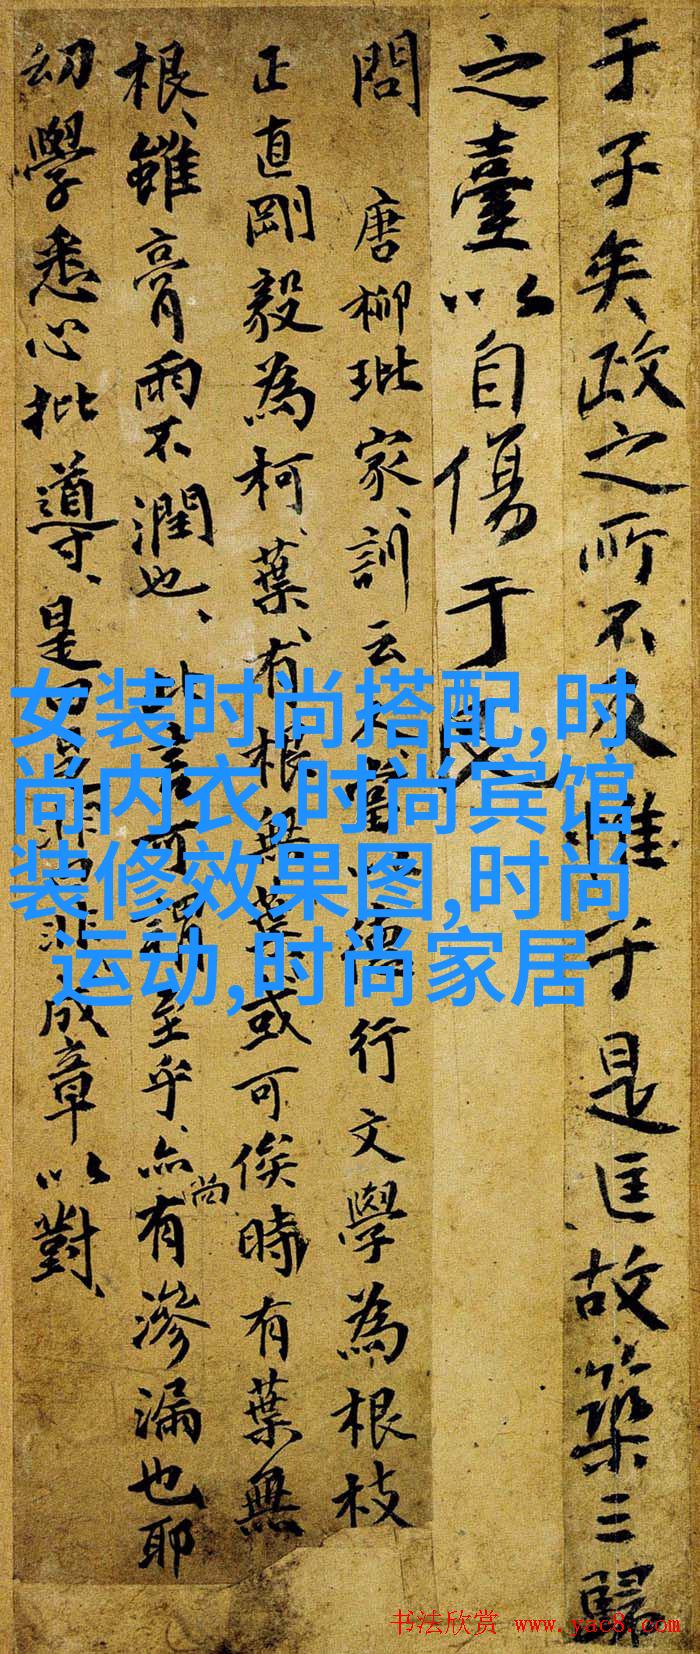 于子矣政之所不及惟于是匡故築三歸
之臺以自傷于民
問
唐柳玭家訓云夫當以德行文學為根枝
正直剛毅為柯葉有根無葉或可俟時有葉無
根雖膏雨不潤也此言可謂至乎亦尚有滲漏也耶
幼學悉心批導是曰是非曰非成章以對
女装时尚搭配,时
尚内衣,时尚宾馆
装修效果图,时尚
运动,时尚家居
书法欣赏 www.yac8.com